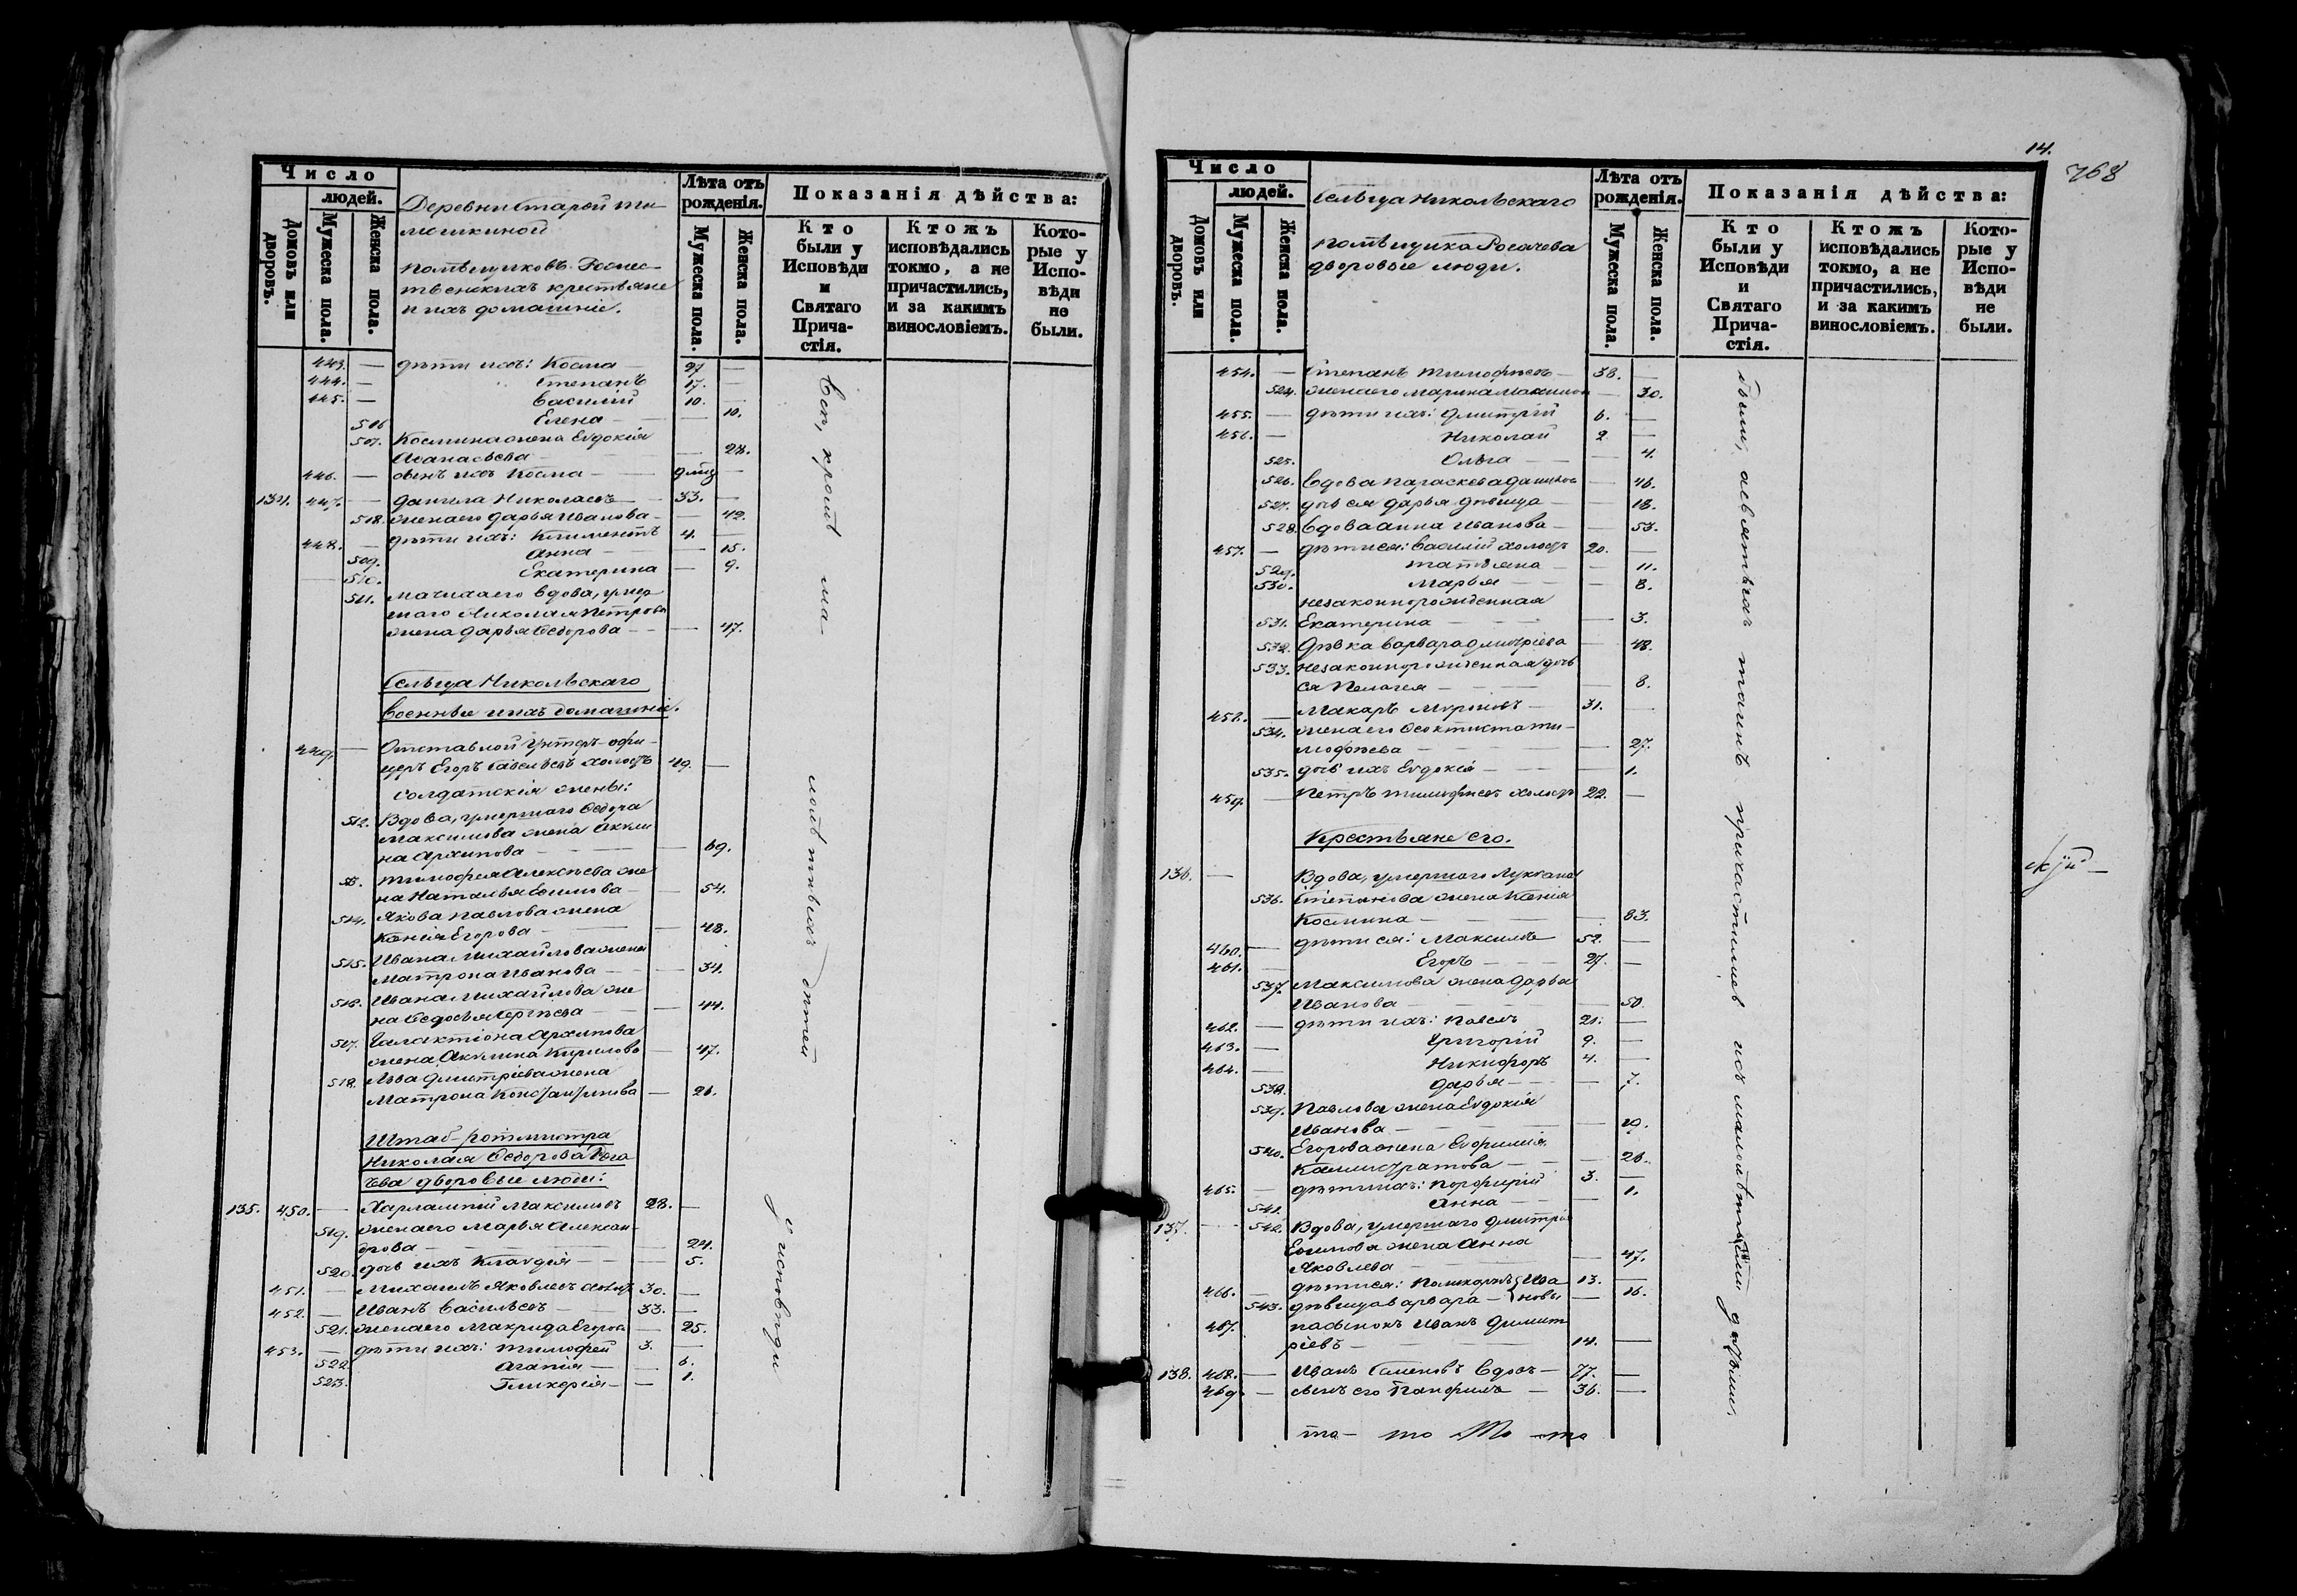 Число
людей.
Домовъ или дворовъ.
Мужеска пола.
Женска пола.
Деревни Старой Ти-
мошкиной
помѣщиковъ
крестьяне
и ихъ домашніе.
Лѣта отъ рожденія.
Мужеска пола.
Женска пола.
Показанія дѣйства:
Кто были у Исповѣди и Святаго Причастія.
Ктожъ исповѣдались токмо, а не причастились, и за какимъ винословіемъ.
Которые у Исповѣди не были.
443. — дѣти ихъ: Косма — 27 —
444. — Степанъ 17. —
445. — Василій 10. —
506 Елена — — 10.
507. Космина жена Евдокія
Аѳанасьева — — 28.
446. — сынъ ихъ Косма —
134. 447. — Данила Николаевъ — 33. —
508. жена его Дарья Иванова — — 42.
448. — дѣти ихъ: Климентъ 4. —
509. Анна — — 15.
510. Екатерина — 9.
511. мачиха его вдова, умер-
шаго Николая Петрова
жена Дарья Ѳедорова — — 47.
Сельца Никольскаго
военные и ихъ домашніе.
449. — Отставной Унтеръ-офи-
церъ Егоръ Савельевъ холостъ 49. —
Солдатскія жены:
512. Вдова, умершаго Ѳедора
Максимова жена Акили-
на Архипова — — 69.
513. Тимофея Алексѣева же-
на Наталья Еѳимова — — 54.
514. Якова Павлова жена
Ксенія Егорова — — 48.
515. Ивана Михайлова жена
Матрона Иванова — — 34.
516. Ивана Михайлова же-
на Ѳедосья Сергѣева — — 44.
517. Галактіона Архипова
жена Акулина Кирилова — 47.
518. Льва Дмитріева жена
Матрона Константинова — 26.
Штаб-ротмистра
Николая Ѳедорова Рога-
чева дворовые люди:
135. 450. — Харлампій Максимовъ 28. —
519. жена его Марья Алексан-
дрова — — 24.
520. дочь ихъ Клавдія — — 5.
451. — Михаилъ Яковлевъ холостъ 30. —
452. — Иванъ Васильевъ — 33. —
521. жена его Макрида Егорова — 25.
453. — дѣти ихъ: Тимофей 3. —
522. Агапія — — 6.
523. Гликерія — — 1.
Всѣ, кромѣ ма-
лолѣтныхъ дѣтей
у исповѣди
14.
768
Число
людей.
Домовъ или дворовъ.
Мужеска пола.
Женска пола.
Сельца Никольскаго
помѣщика Рогачева
дворовые люди.
Лѣта отъ рожденія.
Мужеска пола.
Женска пола.
Показанія дѣйства:
Кто были у Исповѣди и Святаго Причастія.
Ктожъ исповѣдались токмо, а не причастились, и за какимъ винословіемъ.
Которые у Исповѣди не были.
454. — Степанъ Тимофеевъ — 38. —
524. жена его Марина Максимова — 30.
455. — дѣти ихъ: Дмитрій 6. —
456. — Николай 2 —
525. Ольга — — 4.
526. Вдова Параскева Данилова — 46.
527. дочь ея Дарья дѣвица — 18.
528. Вдова Анна Иванова — — 53.
457. — дѣти ея: Василій холостъ 20. —
529. Татьяна — — 11.
530. Марья — — 8.
незаконнорожденная
531. Екатерина — — 3.
532. Дѣвка Варвара Дмитріева — 48.
533. незаконнорожденная дочь
ея Пелагея — — 8.
458. — Макаръ Мироновъ — 31. —
534. жена его Ѳеоктиста Ти-
мофеева — — 27.
535. дочь ихъ Евдокія — — 1.
459. — Петръ Тимофеевъ холостъ 22. —
Крестьяне его.
136. — Вдова, умершаго Лукіана
536. Степанова жена Ксенія
Космина — — 83.
460. — дѣти ея: Максимъ 52. —
461. — Егоръ — 27. —
537. Максимова жена Дарья
Иванова — — 50.
462. — дѣти ихъ: Павелъ 21. —
463. — Григорій 9. —
464. — Никифоръ 4. —
538. Дарья — — 7.
539. Павлова жена Евдокія
Иванова — — 19.
540. Егорова жена Евфимія
Калистратова — — 26.
465. — дѣти ихъ: Порфирій 3. —
541. Анна — — 1.
137. — 542. Вдова, умершаго Дмитрія
Еѳимова жена Анна
Яковлева — — 47.
466. — дѣти ея: Поликарпъ } Ива- 13. —
543. дѣвица Варвара — } новы — 16.
467. пасынокъ Иванъ Димит-
ріевъ — 14. —
138. 468. — Иванъ Семеновъ вдовъ — 77. —
469. — сынъ его Панфилъ — 36. —
были, а святыхъ таинъ
причастились
съ малолѣтными дѣтьми